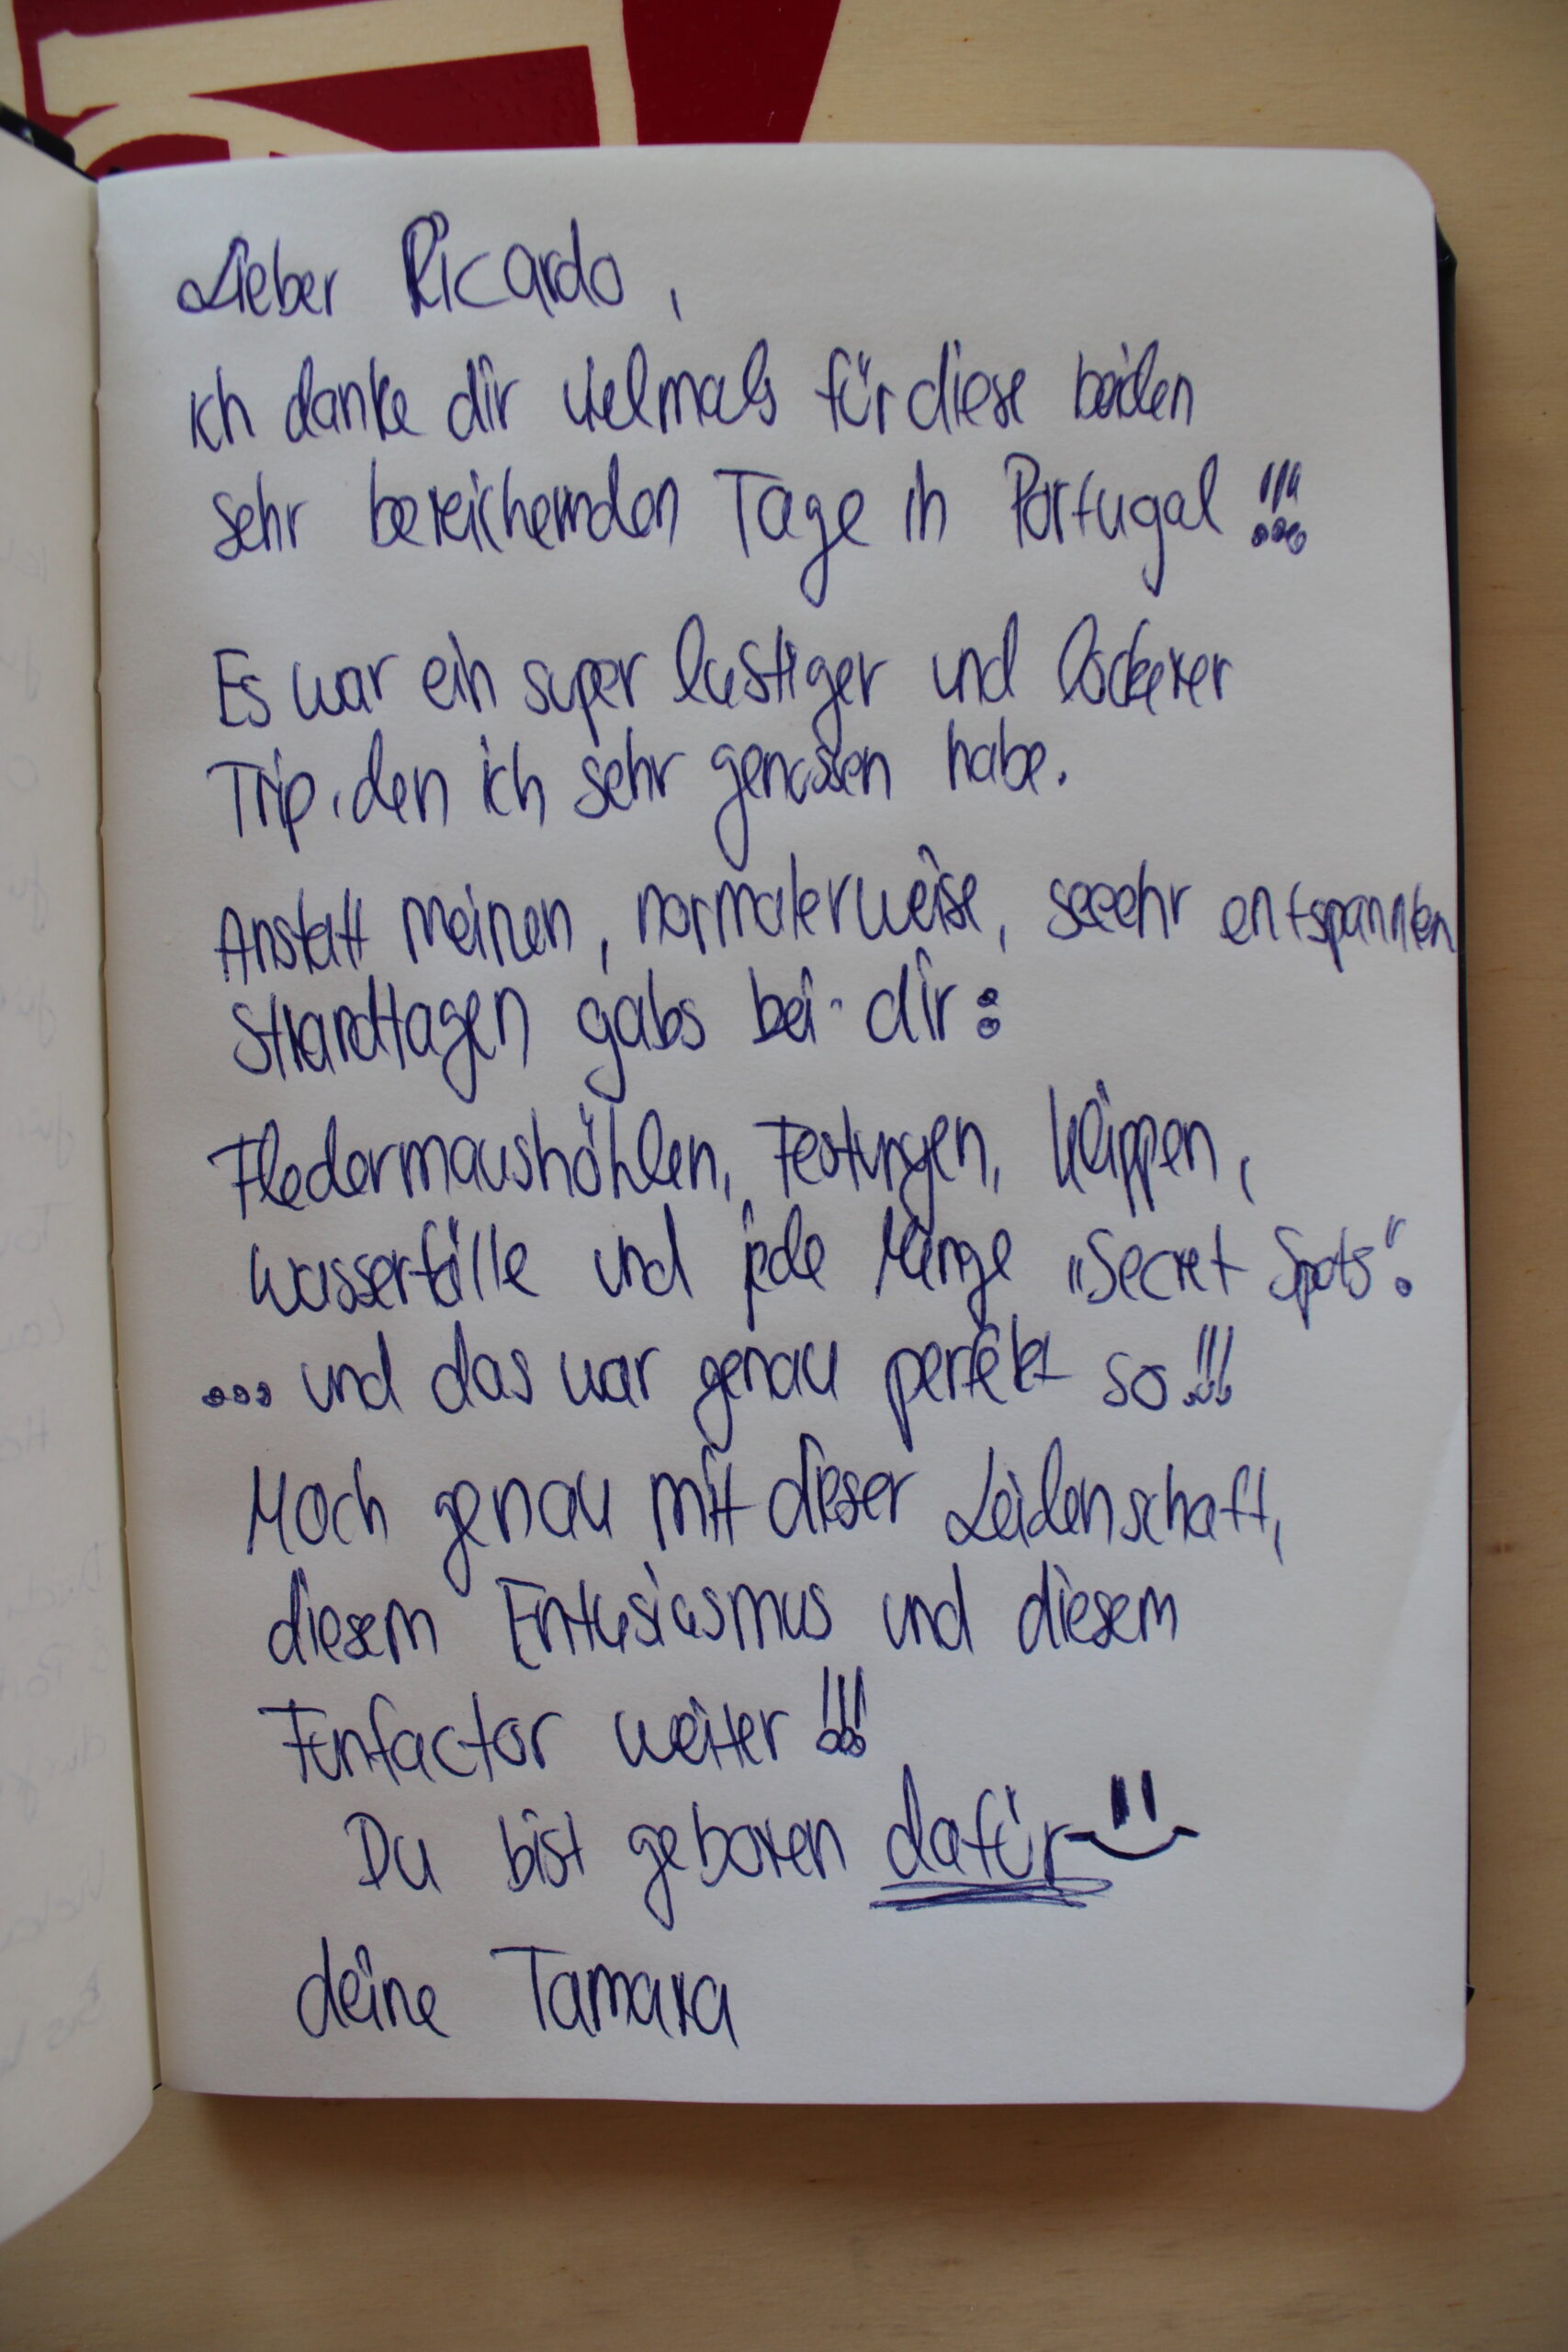 Lieber Ricardo,
ich danke dir vielmals für diese beiden
sehr bereichernden Tage in Portugal!!!
Es war ein super lustiger und lockerer
Trip, den ich sehr genossen habe.
Anstatt meinen, normalerweise, seeehr entspannten
Strandtagen gabs bei dir:
Fledermaushöhlen, Festungen, Klippen,
Wasserfälle und jede Menge „Secret Spots“.
... und das war genau perfekt so!!!
Mach genau mit dieser Leidenschaft,
diesem Entusiasmus und diesem
Funfactor weiter!!!
Du bist geboren dafür
deine Tamara